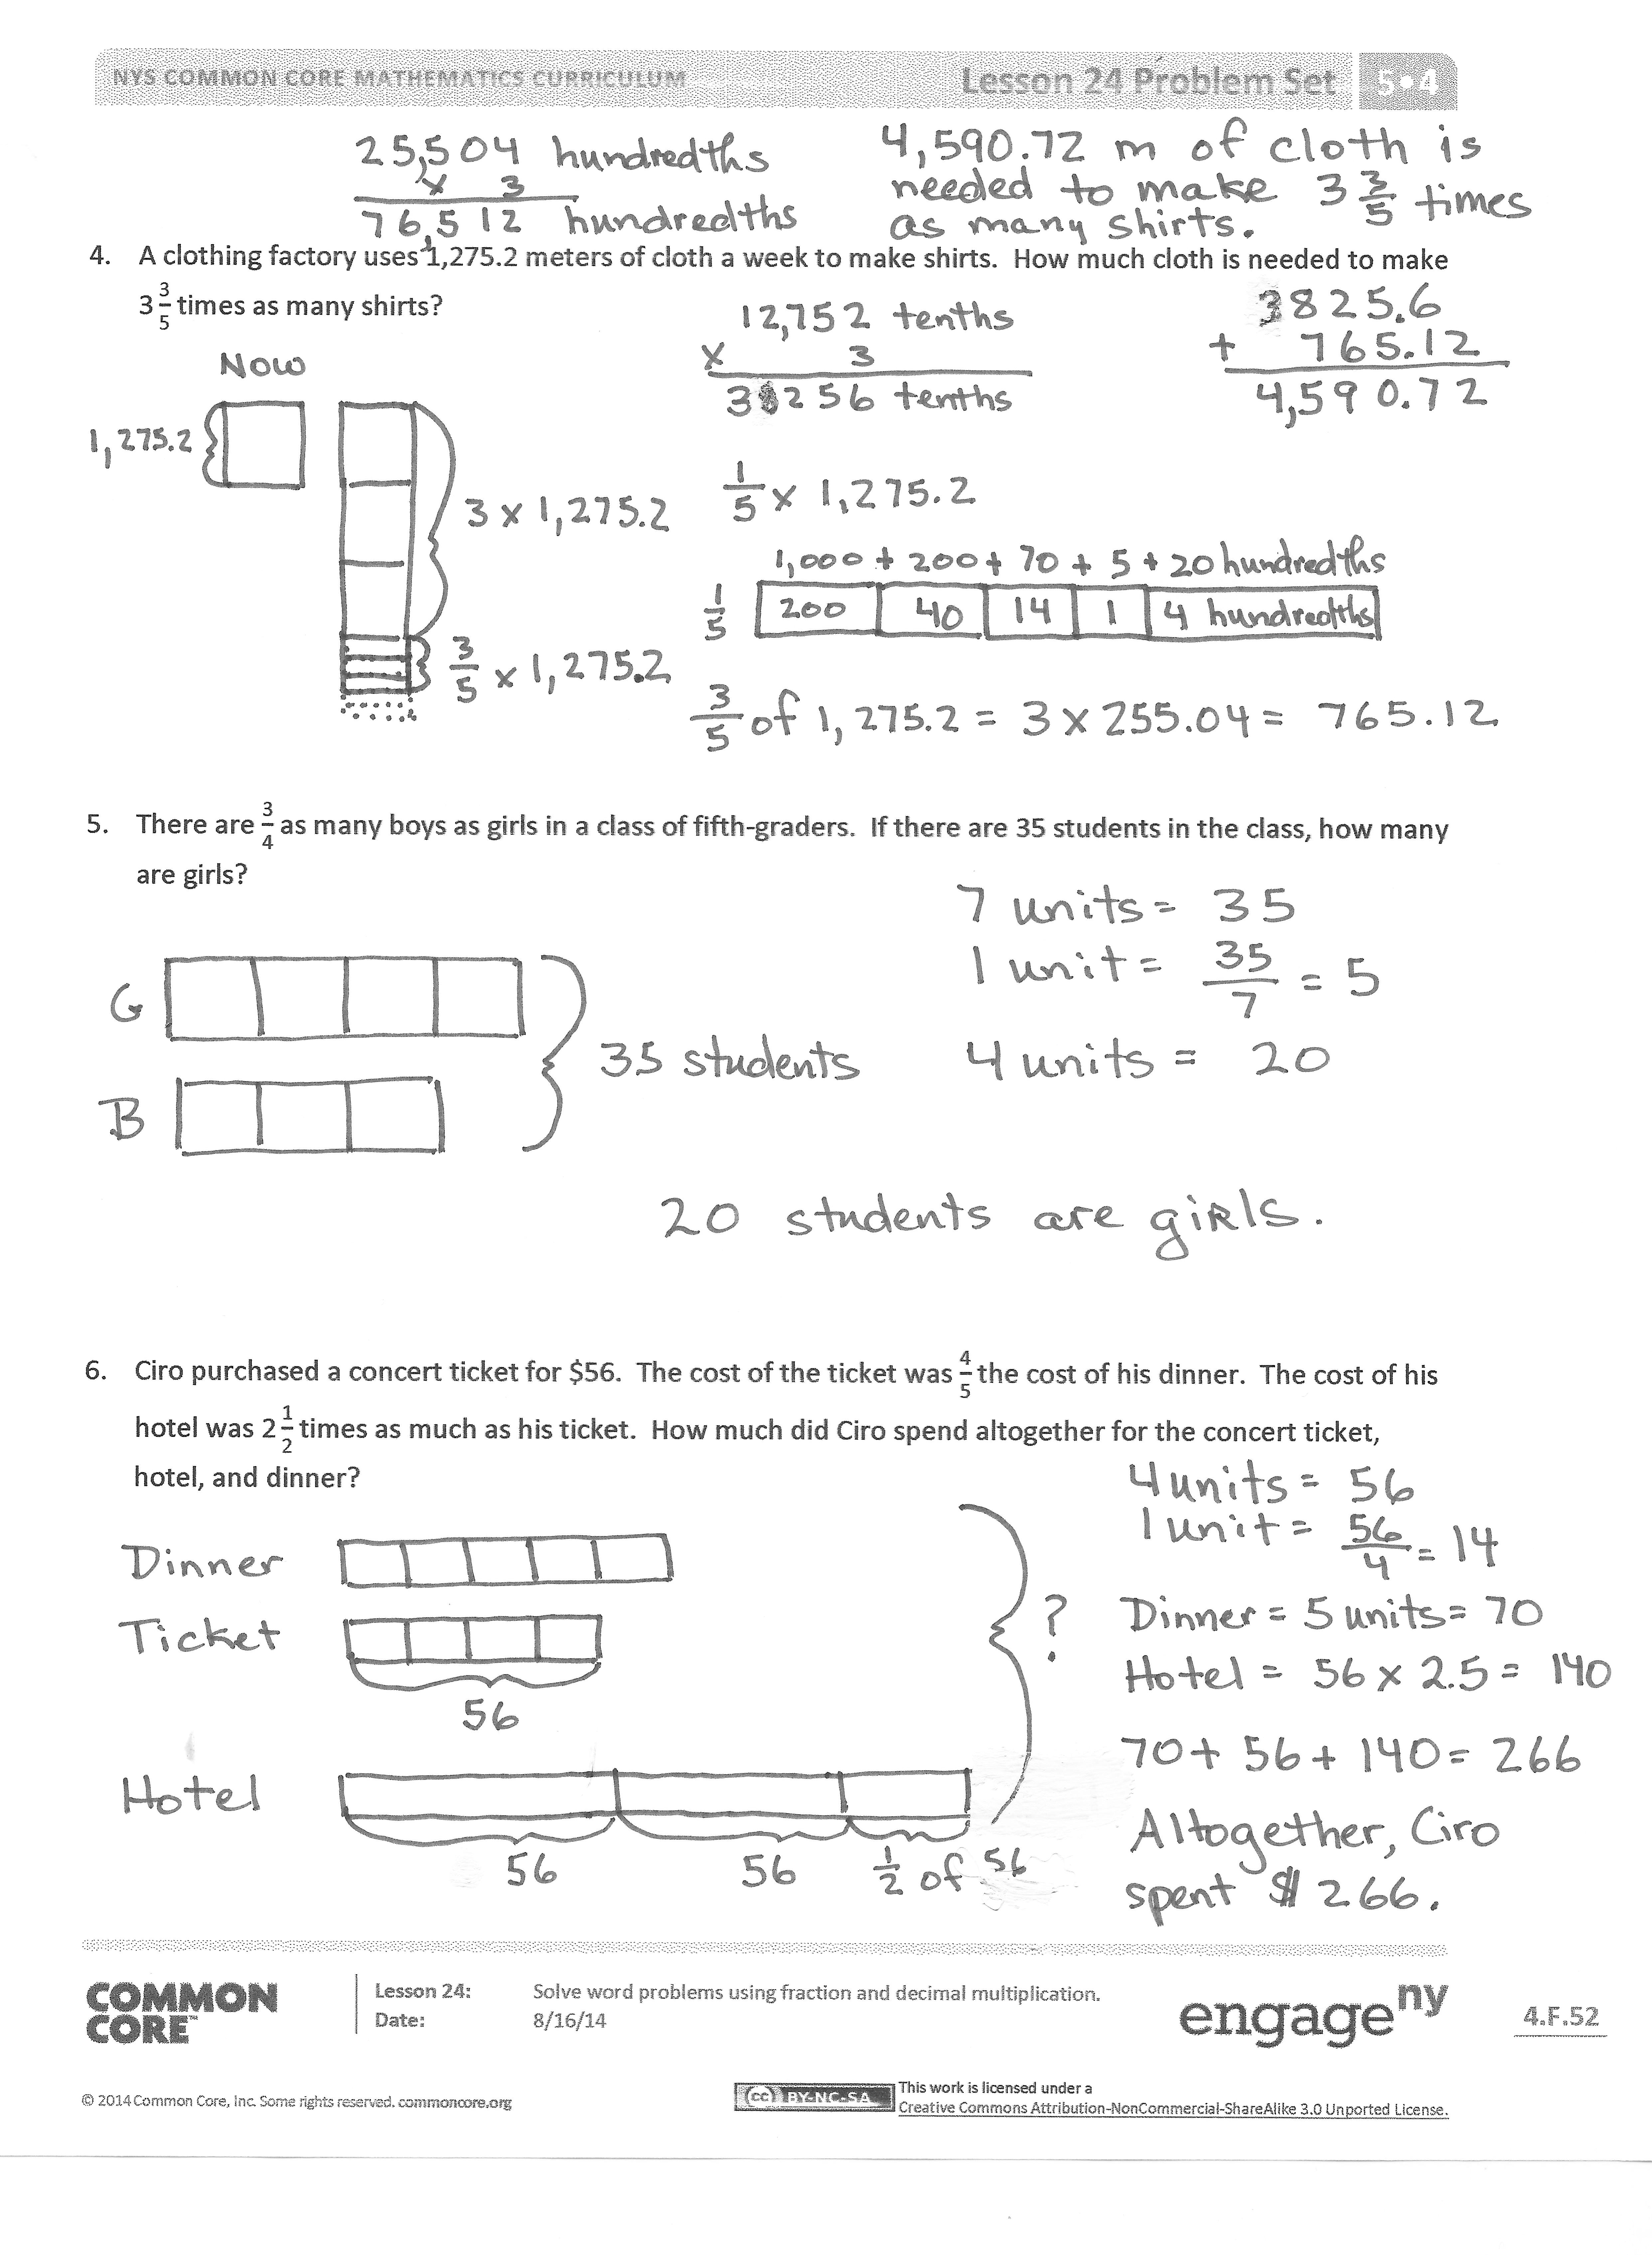 NYS COMMON CORE MATHEMATICS CURRICULUM Lesson 24 Problem Set 5•4
25,504 hundredths
x 3
76,512 hundredths
4,590.72 m of cloth is
needed to make 3 3/5 times
as many shirts.
4. A clothing factory uses 1,275.2 meters of cloth a week to make shirts. How much cloth is needed to make
3 3/5 times as many shirts?
Now
1,275.2
3 x 1,275.2
3/5 x 1,275.2
12,752 tenths
x 3
38256 tenths
3825.6
+ 765.12
4,590.72
1/5 x 1,275.2
1,000 + 200 + 70 + 5 + 20 hundredths
1/5 200 40 14 1 4 hundredths
3/5 of 1,275.2 = 3 x 255.04 = 765.12
5. There are 3/4 as many boys as girls in a class of fifth-graders. If there are 35 students in the class, how many
are girls?
7 units = 35
1 unit = 35/7 = 5
4 units = 20
G
B
35 students
20 students are girls.
6. Ciro purchased a concert ticket for $56. The cost of the ticket was 4/5 the cost of his dinner. The cost of his
hotel was 2 1/2 times as much as his ticket. How much did Ciro spend altogether for the concert ticket,
hotel, and dinner?
Dinner
Ticket
56
Hotel
56 56 1/2 of 56
?
4 units = 56
1 unit = 56/4 = 14
Dinner = 5 units = 70
Hotel = 56 x 2.5 = 140
70 + 56 + 140 = 266
Altogether, Ciro
spent $266.
COMMON
CORE™
Lesson 24: Solve word problems using fraction and decimal multiplication.
Date: 8/16/14
engage ny
4.F.52
© 2014 Common Core, Inc. Some rights reserved. commoncore.org
cc BY-NC-SA
This work is licensed under a
Creative Commons Attribution-NonCommercial-ShareAlike 3.0 Unported License.